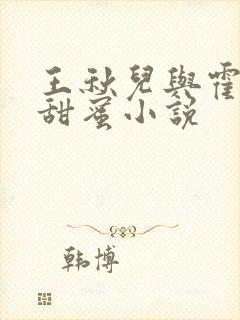 王秋兒與霍
甜蜜小說
韩博